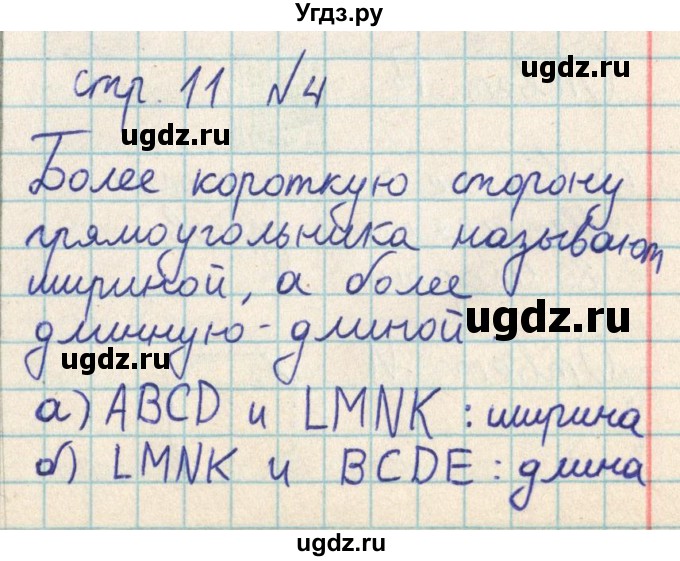 Угдз.ру
ugdz.ru
стр. 11 №4
ugdz.ru
Более короткую сторону
ugdz.ru
прямоугольника называют
шириной, а более
ugdz.ru
длинную - длиной
ugdz.ru
а) ABCD и LMNK : ширина
б) LMNK и BCDE : длина
ugdz.ru
ugdz.ru